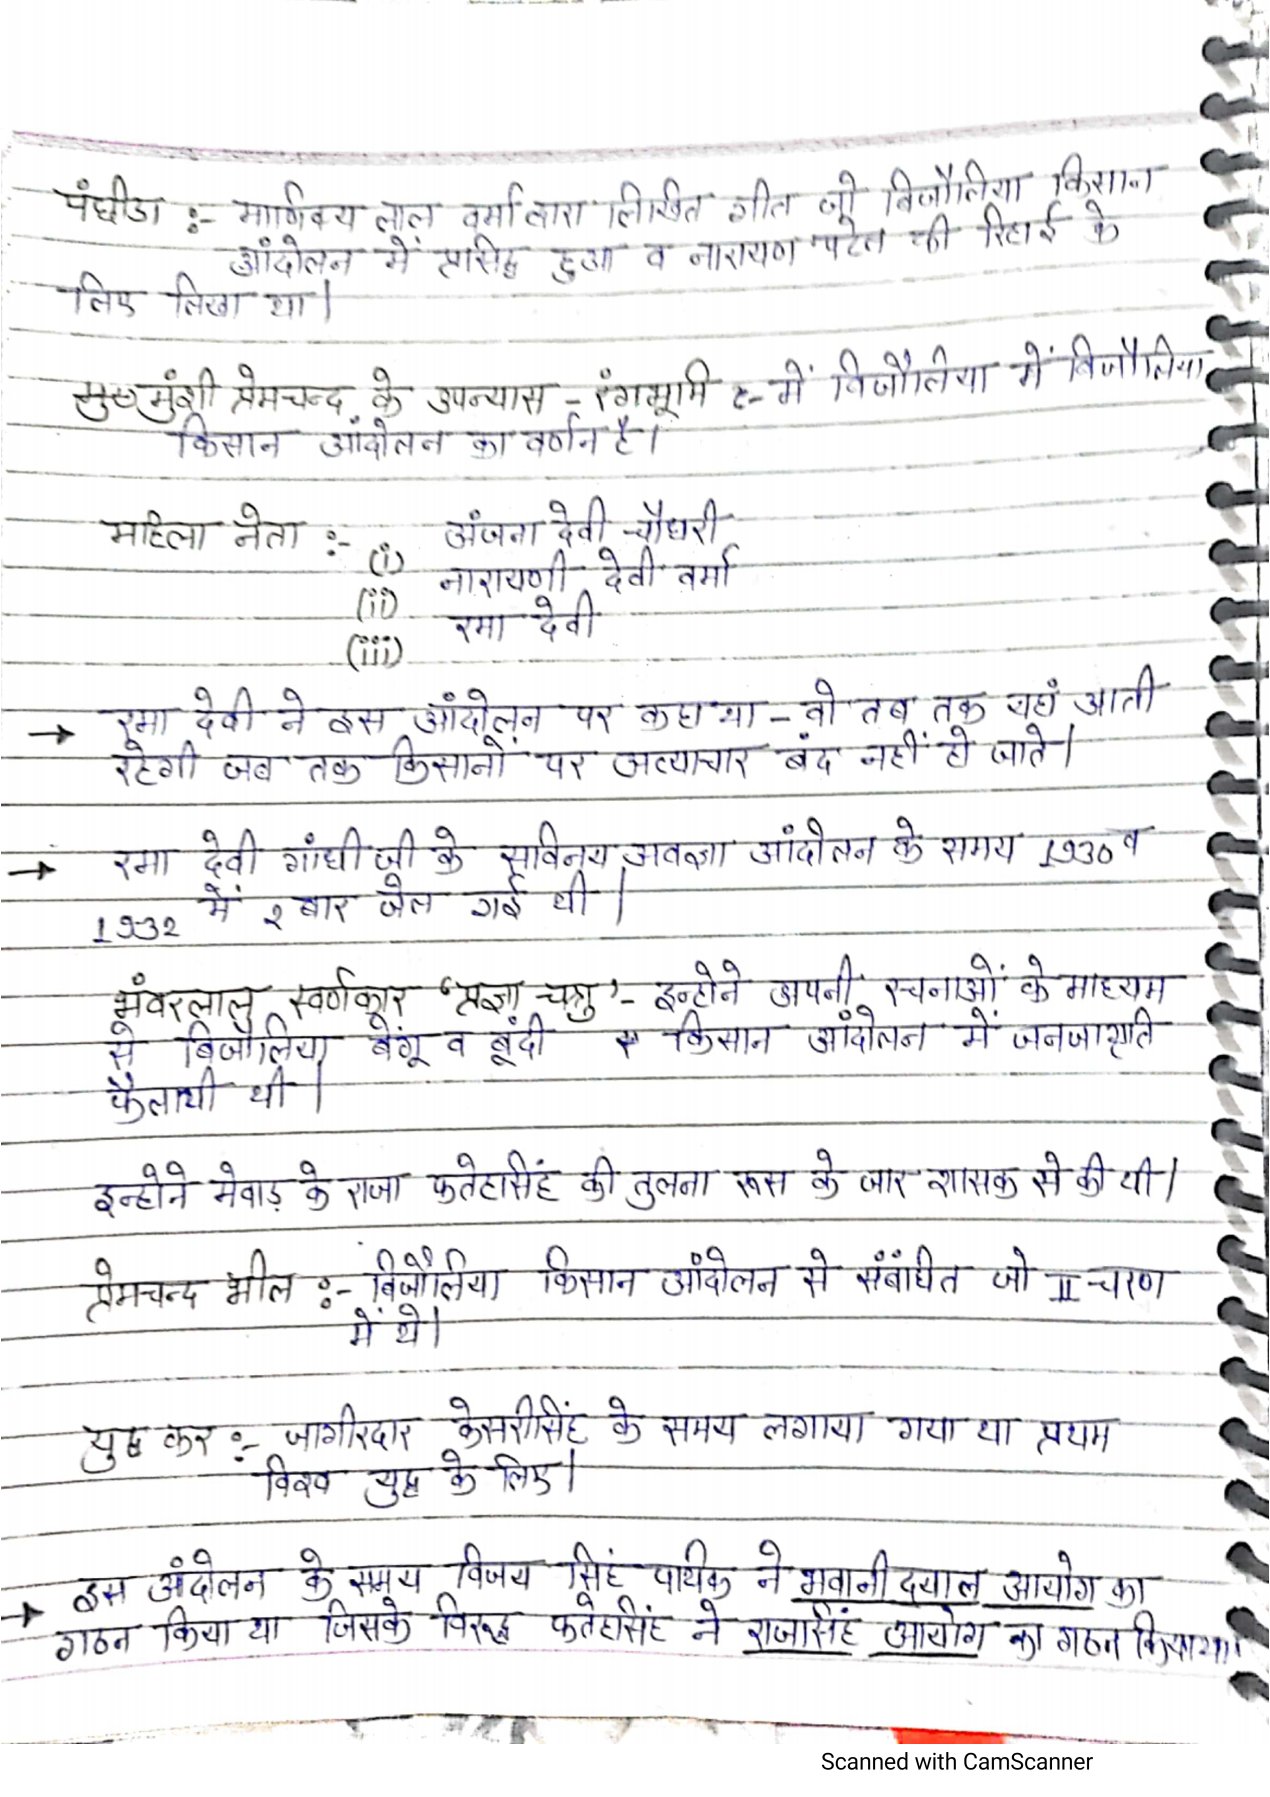 पंछीडा :- माणिक्य लाल वर्मा द्वारा लिखित गीत जो बिजौलिया किसान
आंदोलन में प्रसिद्ध हुआ व नारायण पटेल की रिहाई के
लिए लिखा था।
मुंशी प्रेमचन्द के उपन्यास - रंगभूमि :- में बिजौलिया में बिजौलिया
किसान आंदोलन का वर्णन है।
महिला नेता :- (i) अंजना देवी चौधरी
(ii) नारायणी देवी वर्मा
(iii) रमा देवी
→ रमा देवी ने इस आंदोलन पर कहा था - वो तब तक यहां आती
रहेगी जब तक किसानों पर अत्याचार बंद नहीं हो जाते।
→ रमा देवी गांधी जी के सविनय अवज्ञा आंदोलन के समय 1930 व
1932 में 2 बार जेल गई थी।
भंवरलाल स्वर्णकार 'प्रज्ञा चक्षु' - इन्होने अपनी रचनाओं के माध्यम
से बिजौलिया बेंगू व बूंदी किसान आंदोलन में जनजागृति
फैलायी थी।
इन्होने मेवाड़ के राजा फतेहसिंह की तुलना रूस के जार शासक से की थी।
प्रेमचन्द भील :- बिजौलिया किसान आंदोलन से संबंधित जो II चरण
में थे।
युद्ध कर :- जागीरदार केसरीसिंह के समय लगाया गया था प्रथम
विश्व युद्ध के लिए।
→ इस अंदोलन के समय विजय सिंह पथिक ने भवानी दयाल आयोग का
गठन किया था जिसके विरुद्ध फतेहसिंह ने राजसिंह आयोग का गठन किया था।
Scanned with CamScanner